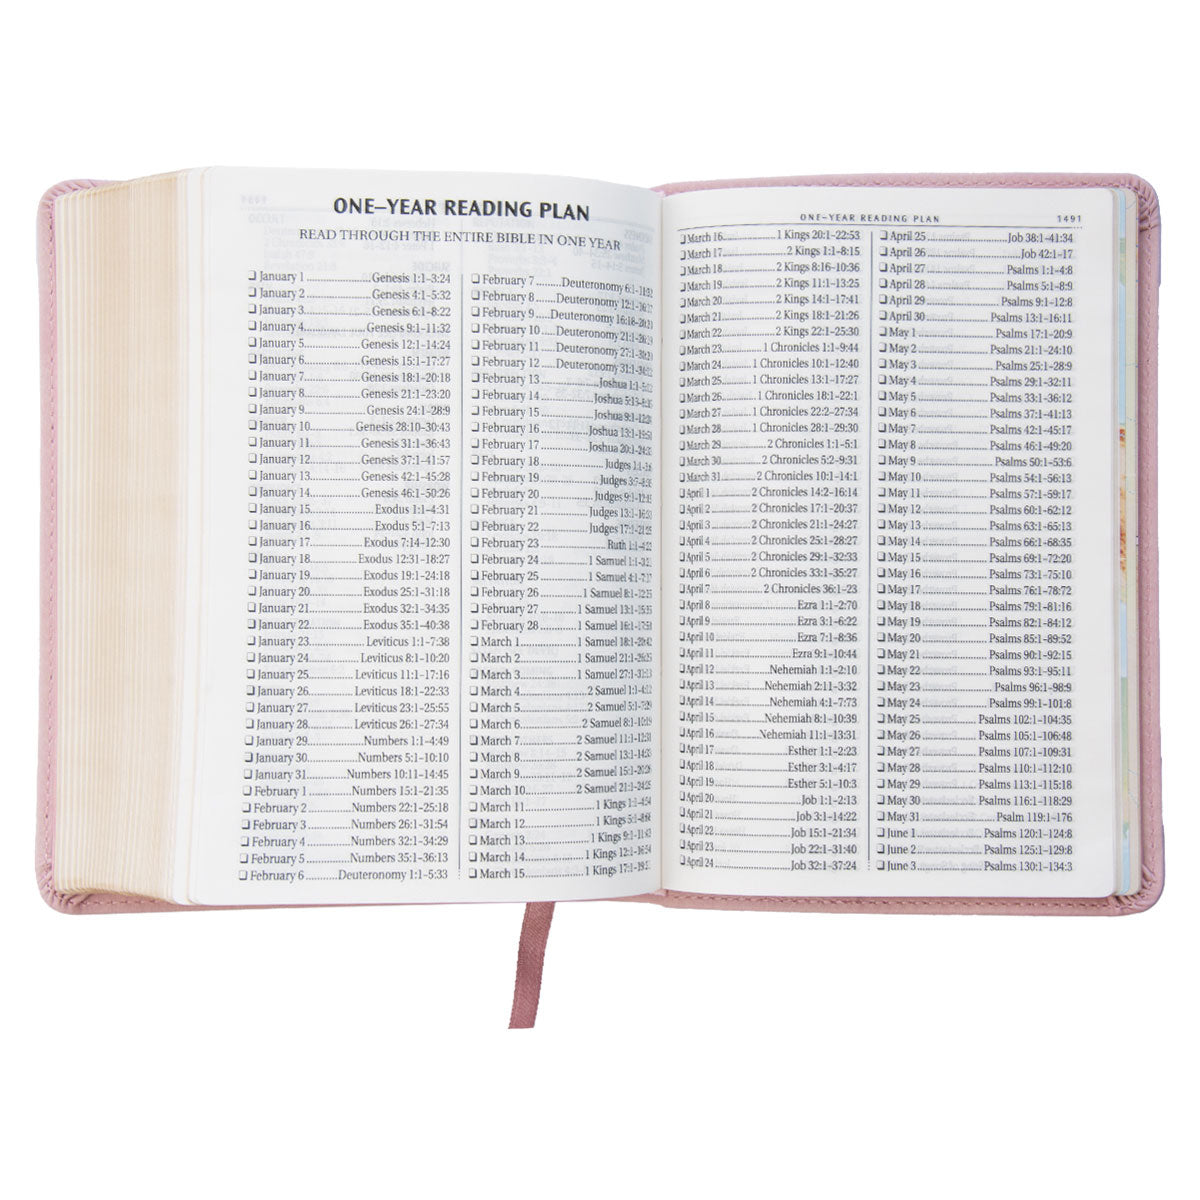 ONE–YEAR READING PLAN
READ THROUGH THE ENTIRE BIBLE IN ONE YEAR
❑ January 1 ..... Genesis 1:1–3:24
❑ January 2 ..... Genesis 4:1–5:32
❑ January 3 ..... Genesis 6:1–8:22
❑ January 4 ..... Genesis 9:1–11:32
❑ January 5 ..... Genesis 12:1–14:24
❑ January 6 ..... Genesis 15:1–17:27
❑ January 7 ..... Genesis 18:1–20:18
❑ January 8 ..... Genesis 21:1–23:20
❑ January 9 ..... Genesis 24:1–28:9
❑ January 10 ..... Genesis 28:10–30:43
❑ January 11 ..... Genesis 31:1–36:43
❑ January 12 ..... Genesis 37:1–41:57
❑ January 13 ..... Genesis 42:1–45:28
❑ January 14 ..... Genesis 46:1–50:26
❑ January 15 ..... Exodus 1:1–4:31
❑ January 16 ..... Exodus 5:1–7:13
❑ January 17 ..... Exodus 7:14–12:30
❑ January 18 ..... Exodus 12:31–18:27
❑ January 19 ..... Exodus 19:1–24:18
❑ January 20 ..... Exodus 25:1–31:18
❑ January 21 ..... Exodus 32:1–34:35
❑ January 22 ..... Exodus 35:1–40:38
❑ January 23 ..... Leviticus 1:1–7:38
❑ January 24 ..... Leviticus 8:1–10:20
❑ January 25 ..... Leviticus 11:1–17:16
❑ January 26 ..... Leviticus 18:1–22:33
❑ January 27 ..... Leviticus 23:1–25:55
❑ January 28 ..... Leviticus 26:1–27:34
❑ January 29 ..... Numbers 1:1–4:49
❑ January 30 ..... Numbers 5:1–10:10
❑ January 31 ..... Numbers 10:11–14:45
❑ February 1 ..... Numbers 15:1–21:35
❑ February 2 ..... Numbers 22:1–25:18
❑ February 3 ..... Numbers 26:1–31:54
❑ February 4 ..... Numbers 32:1–34:29
❑ February 5 ..... Numbers 35:1–36:13
❑ February 6 ..... Deuteronomy 1:1–5:33
❑ February 7 ..... Deuteronomy 6:1–11:32
❑ February 8 ..... Deuteronomy
❑ February 9 ..... Deuteronomy
❑ February 10 ..... Deuteronomy
❑ February 11 ..... Deuteronomy
❑ February 12 ..... Deuteronomy
❑ February 13 ..... Joshua
❑ February 14 ..... Joshua
❑ February 15 ..... Joshua
❑ February 16 ..... Joshua
❑ February 17 ..... Joshua
❑ February 18 ..... Judges
❑ February 19 ..... Judges
❑ February 20 ..... Judges
❑ February 21 ..... Judges
❑ February 22 ..... Judges
❑ February 23 ..... Ruth 1:1–4:22
❑ February 24 ..... 1 Samuel
❑ February 25 ..... 1 Samuel
❑ February 26 ..... 1 Samuel
❑ February 27 ..... 1 Samuel 13:1–15:35
❑ February 28 ..... 1 Samuel
❑ March 1 ..... 1 Samuel
❑ March 2 ..... 1 Samuel
❑ March 3 ..... 1 Samuel 27:1–31:13
❑ March 4 ..... 2 Samuel 1:1–4:12
❑ March 5 ..... 2 Samuel
❑ March 6 ..... 2 Samuel 8:1–10:19
❑ March 7 ..... 2 Samuel 11:1–12:31
❑ March 8 ..... 2 Samuel
❑ March 9 ..... 2 Samuel
❑ March 10 ..... 2 Samuel
❑ March 11 ..... 1 Kings
❑ March 12 ..... 1 Kings
❑ March 13 ..... 1 Kings
❑ March 14 ..... 1 Kings
❑ March 15 ..... 1 Kings
ONE–YEAR READING PLAN 1491
❑ March 16 ..... 1 Kings 20:1–22:53
❑ March 17 ..... 2 Kings 1:1–8:15
❑ March 18 ..... 2 Kings 8:16–10:36
❑ March 19 ..... 2 Kings 11:1–13:25
❑ March 20 ..... 2 Kings 14:1–17:41
❑ March 21 ..... 2 Kings 18:1–21:26
❑ March 22 ..... 2 Kings 22:1–25:30
❑ March 23 ..... 1 Chronicles 1:1–9:44
❑ March 24 ..... 1 Chronicles 10:1–12:40
❑ March 25 ..... 1 Chronicles 13:1–17:27
❑ March 26 ..... 1 Chronicles 18:1–22:1
❑ March 27 ..... 1 Chronicles 22:2–27:34
❑ March 28 ..... 1 Chronicles 28:1–29:30
❑ March 29 ..... 2 Chronicles 1:1–5:1
❑ March 30 ..... 2 Chronicles 5:2–9:31
❑ March 31 ..... 2 Chronicles 10:1–14:1
❑ April 1 ..... 2 Chronicles 14:2–16:14
❑ April 2 ..... 2 Chronicles 17:1–20:37
❑ April 3 ..... 2 Chronicles 21:1–24:27
❑ April 4 ..... 2 Chronicles 25:1–28:27
❑ April 5 ..... 2 Chronicles 29:1–32:33
❑ April 6 ..... 2 Chronicles 33:1–35:27
❑ April 7 ..... 2 Chronicles 36:1–23
❑ April 8 ..... Ezra 1:1–2:70
❑ April 9 ..... Ezra 3:1–6:22
❑ April 10 ..... Ezra 7:1–8:36
❑ April 11 ..... Ezra 9:1–10:44
❑ April 12 ..... Nehemiah 1:1–2:10
❑ April 13 ..... Nehemiah 2:11–3:32
❑ April 14 ..... Nehemiah 4:1–7:73
❑ April 15 ..... Nehemiah 8:1–10:39
❑ April 16 ..... Nehemiah 11:1–13:31
❑ April 17 ..... Esther 1:1–2:23
❑ April 18 ..... Esther 3:1–4:17
❑ April 19 ..... Esther 5:1–10:3
❑ April 20 ..... Job 1:1–2:13
❑ April 21 ..... Job 3:1–14:22
❑ April 22 ..... Job 15:1–21:34
❑ April 23 ..... Job 22:1–31:40
❑ April 24 ..... Job 32:1–37:24
❑ April 25 ..... Job 38:1–41:34
❑ April 26 ..... Job 42:1–17
❑ April 27 ..... Psalms 1:1–4:8
❑ April 28 ..... Psalms 5:1–8:9
❑ April 29 ..... Psalms 9:1–12:8
❑ April 30 ..... Psalms 13:1–16:11
❑ May 1 ..... Psalms 17:1–20:9
❑ May 2 ..... Psalms 21:1–24:10
❑ May 3 ..... Psalms 25:1–28:9
❑ May 4 ..... Psalms 29:1–32:11
❑ May 5 ..... Psalms 33:1–36:12
❑ May 6 ..... Psalms 37:1–41:13
❑ May 7 ..... Psalms 42:1–45:17
❑ May 8 ..... Psalms 46:1–49:20
❑ May 9 ..... Psalms 50:1–53:6
❑ May 10 ..... Psalms 54:1–56:13
❑ May 11 ..... Psalms 57:1–59:17
❑ May 12 ..... Psalms 60:1–62:12
❑ May 13 ..... Psalms 63:1–65:13
❑ May 14 ..... Psalms 66:1–68:35
❑ May 15 ..... Psalms 69:1–72:20
❑ May 16 ..... Psalms 73:1–75:10
❑ May 17 ..... Psalms 76:1–78:72
❑ May 18 ..... Psalms 79:1–81:16
❑ May 19 ..... Psalms 82:1–84:12
❑ May 20 ..... Psalms 85:1–89:52
❑ May 21 ..... Psalms 90:1–92:15
❑ May 22 ..... Psalms 93:1–95:11
❑ May 23 ..... Psalms 96:1–98:9
❑ May 24 ..... Psalms 99:1–101:8
❑ May 25 ..... Psalms 102:1–104:35
❑ May 26 ..... Psalms 105:1–106:48
❑ May 27 ..... Psalms 107:1–109:31
❑ May 28 ..... Psalms 110:1–112:10
❑ May 29 ..... Psalms 113:1–115:18
❑ May 30 ..... Psalms 116:1–118:29
❑ May 31 ..... Psalm 119:1–176
❑ June 1 ..... Psalms 120:1–124:8
❑ June 2 ..... Psalms 125:1–129:8
❑ June 3 ..... Psalms 130:1–134:3